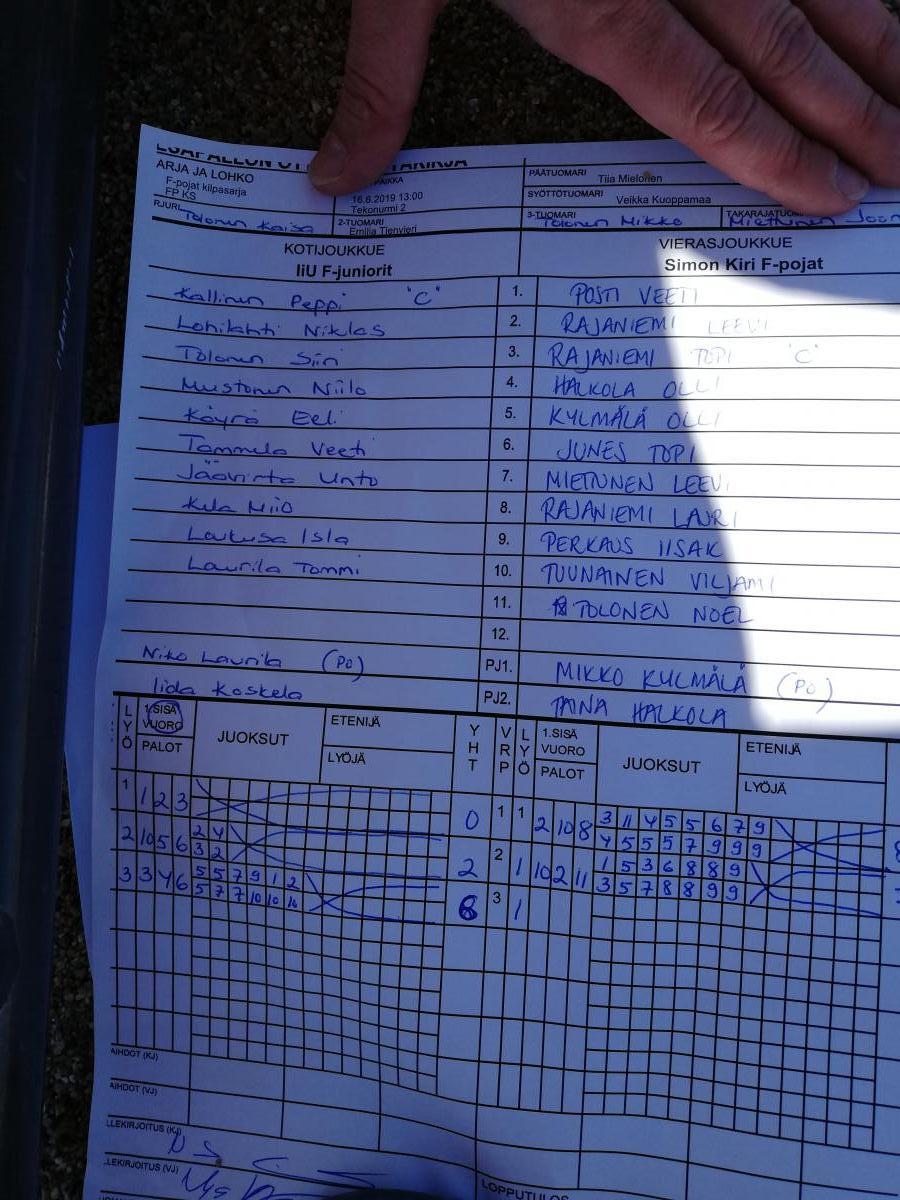 ARJA JA LOHKO
F-pojat kilpasarja
FP KS
PAIKKA
16.6.2019 13:00
Tekonurmi 2
PÄÄTUOMARI
Tiia Mielonen
SYÖTTÖTUOMARI
Veikka Kuoppamaa
RJURI Tolonen Kaisa
2-TUOMARI
Emilia Tienvieri
3-TUOMARI
Tolonen Mikko
TAKARAJATUOM
Miettunen Joon
KOTIJOUKKUE VIERASJOUKKUE
IiU F-juniorit Simon Kiri F-pojat
Kallinen Peppi "C" 1. POSTI VEETI
Lohilahti Niklas 2. RAJANIEMI LEEVI
Tolonen Siiri 3. RAJANIEMI TOPI "C"
Mustonen Niilo 4. HALKOLA OLLI
Köyrä Eeli 5. KYLMÄLÄ OLLI
Tammela Veeti 6. JUNES TOPI
Unto 7. MIETTUNEN LEEVI
8. RAJANIEMI LAURI
Isla 9. PERKAUS IISAK
Laurila Tommi 10. TUUNAINEN VILJAMI
11. TOLONEN NOEL
12.
Niko Laurila (PO) PJ1. MIKKO KYLMÄLÄ (PO)
Iida Koskela PJ2. TAINA HALKOLA
LYÖ 1.SISÄ VUORO PALOT JUOKSUT ETENIJÄ LYÖJÄ YHT VRP LYÖ 1.SISÄ VUORO PALOT JUOKSUT ETENIJÄ LYÖJÄ
1 1 2 3 0 1 1 2 10 8 3 11 4 5 5 6 7 9
4 5 5 5 7 9 9 9
2 10 5 6 2 4 2 2 1 10 2 11 1 5 3 6 8 8 9
3 2 3 5 7 8 8 9 9
3 3 4 6 5 5 7 9 1 2 6 3 1
5 7 7 10 10 10
AIHDOT (KJ)
AIHDOT (VJ)
LLEKIRJOITUS (KJ)
LLEKIRJOITUS (VJ)
LOPPUTULOS